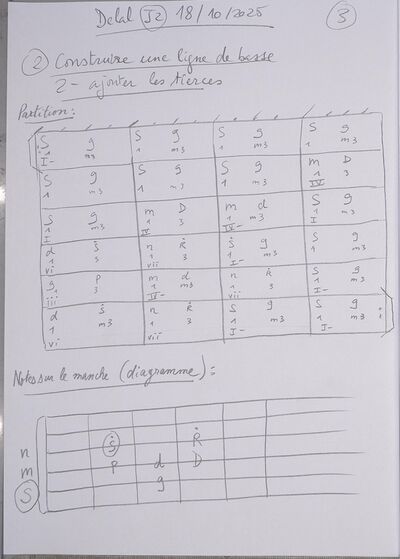 Delal J2 18/10/2025 3
② Construire une ligne de basse
2- ajouter les tierces
Partition:
S g S g S g S g
1 m3 1 m3 1 m3
I-
S g S g S g m D
1 m3 1 m3 1 m3 1 3
IV
S g m D m d S g
1 m3 1 3 1 m3 1 m3
I IV IV- I
d Ṡ n Ṙ Ṡ g S g
1 3 1 3 1 m3 1 m3
vi vii I-
g P m d n S g
1 3 1 m3 3 1 m3
iii IV- vii I-
d Ṡ n Ṙ S g S g
1 m3 1 3 1 m3 1 m3
vii vii I- I-
Notes sur le manche (diagramme):
Ṡ Ṙ
n
m P d D
S g